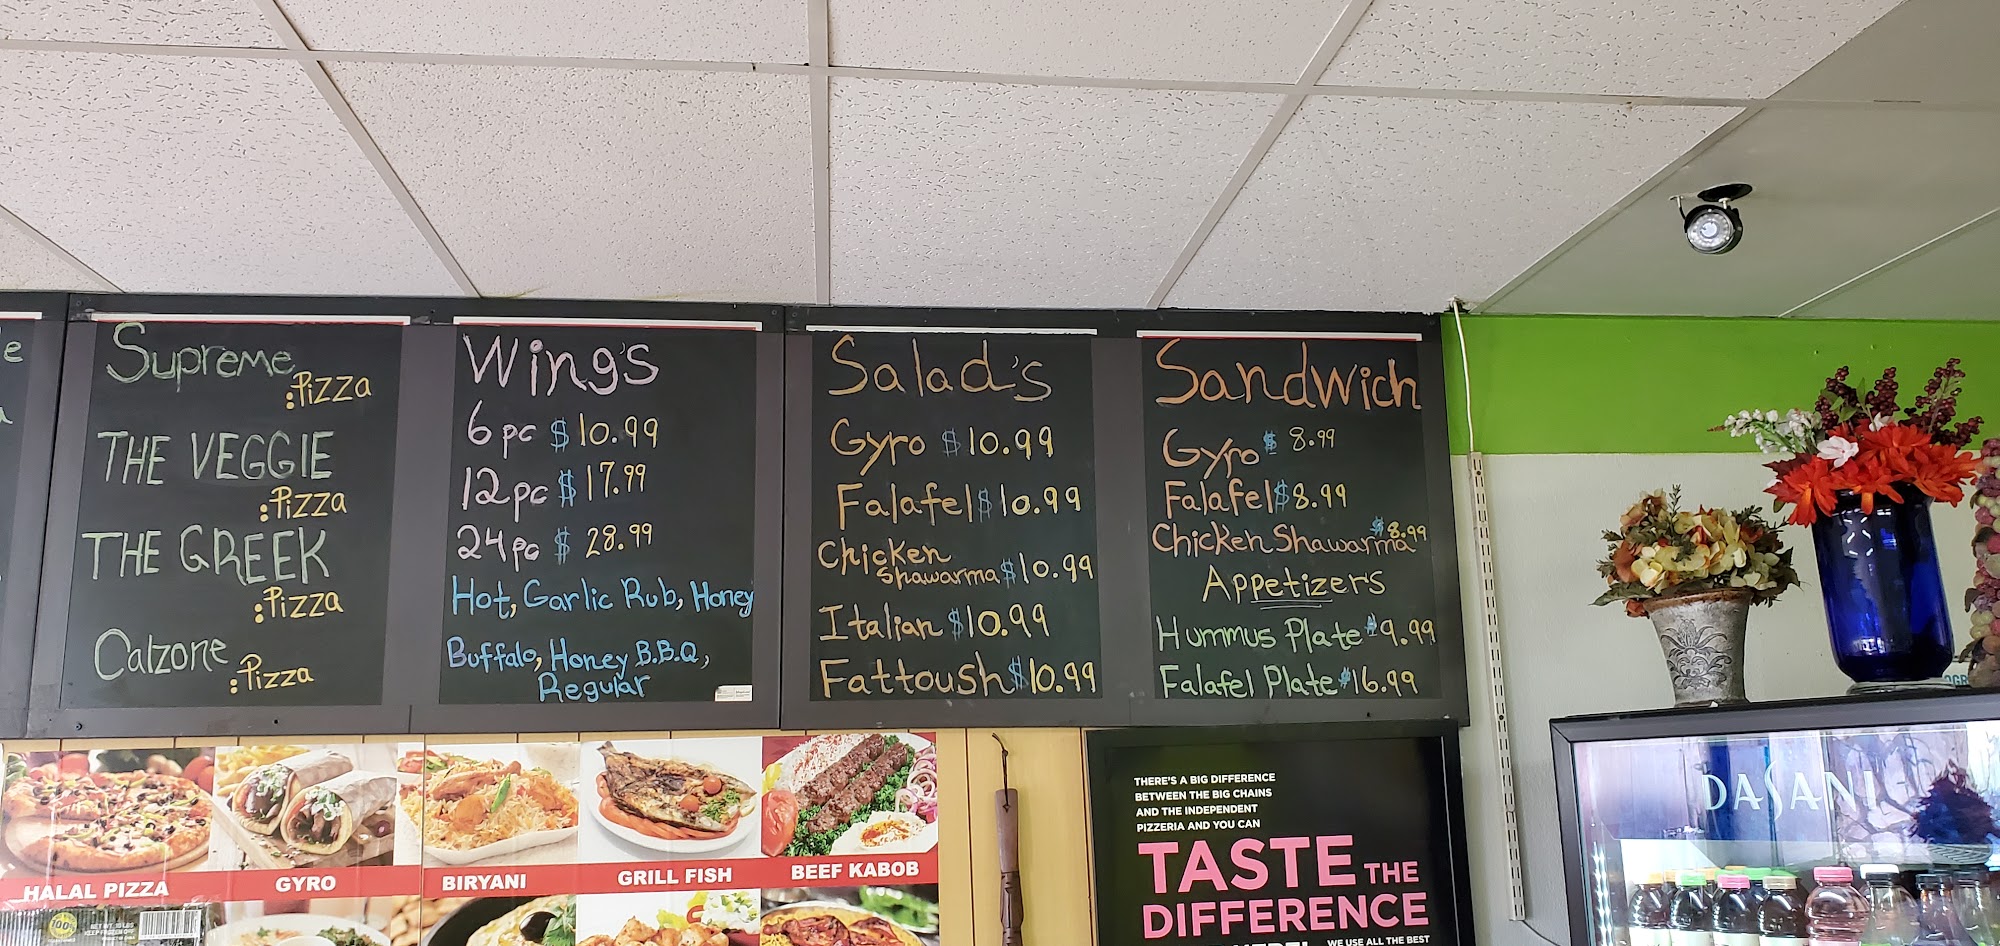 e
Supreme
:Pizza
THE VEGGIE
:Pizza
THE GREEK
:Pizza
Calzone
:Pizza
Wing's
6pc $10.99
12pc $17.99
24pc $28.99
Hot, Garlic Rub, Honey
Buffalo, Honey B.B.Q,
Regular
Salad's
Gyro $10.99
Falafel $10.99
Chicken
Shawarma $10.99
Italian $10.99
Fattoush $10.99
Sandwich
Gyro $8.99
Falafel $8.99
Chicken Shawarma $8.99
Appetizers
Hummus Plate $9.99
Falafel Plate $16.99
HALAL PIZZA
GYRO
BIRYANI
GRILL FISH
BEEF KABOB
100%
KEEP FROZEN
THERE'S A BIG DIFFERENCE
BETWEEN THE BIG CHAINS
AND THE INDEPENDENT
PIZZERIA AND YOU CAN
TASTE THE
DIFFERENCE
WE USE ALL THE BEST
DASANI